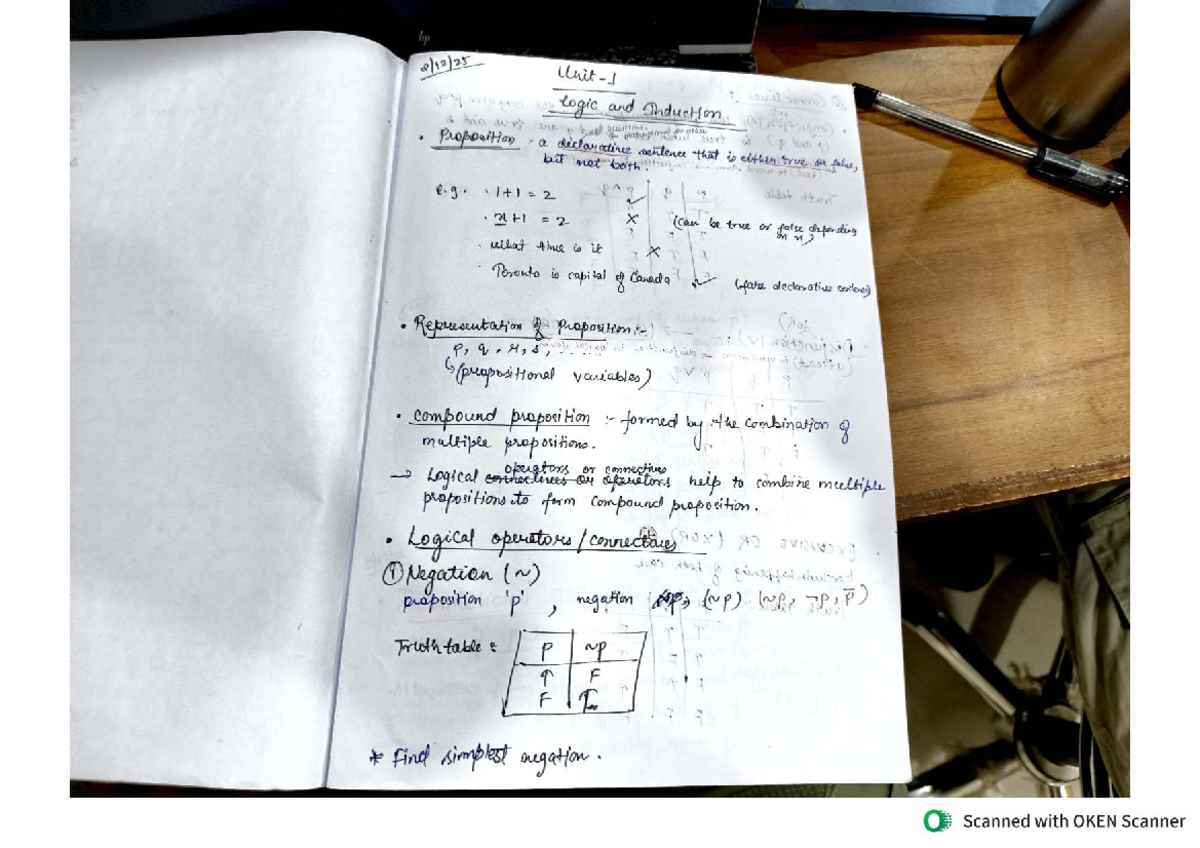 hp
2/12/25
Unit-1
Logic and Induction
• Proposition - a declarative sentence that is either true or false,
but not both.
e.g. · 1+1 = 2 ✓
· x+1 = 2 × (can be true or false depending
on x)
· What time is it ×
· Toronto is capital of Canada ✓ (false declarative sentence)
• Representation of Proposition :-
p, q, r, s, ....
(propositional variables)
• Compound proposition :- formed by the combination of
multiple propositions.
operators or connectives
→ Logical connectives or operators help to combine multiple
propositions to form compound proposition.
• Logical operators / connectives
① Negation (~)
proposition 'p', negation (~p) (~p, ¬p, p̅)
Truth table :
p ~p
T F
F T
* Find simplest negation.
Scanned with OKEN Scanner